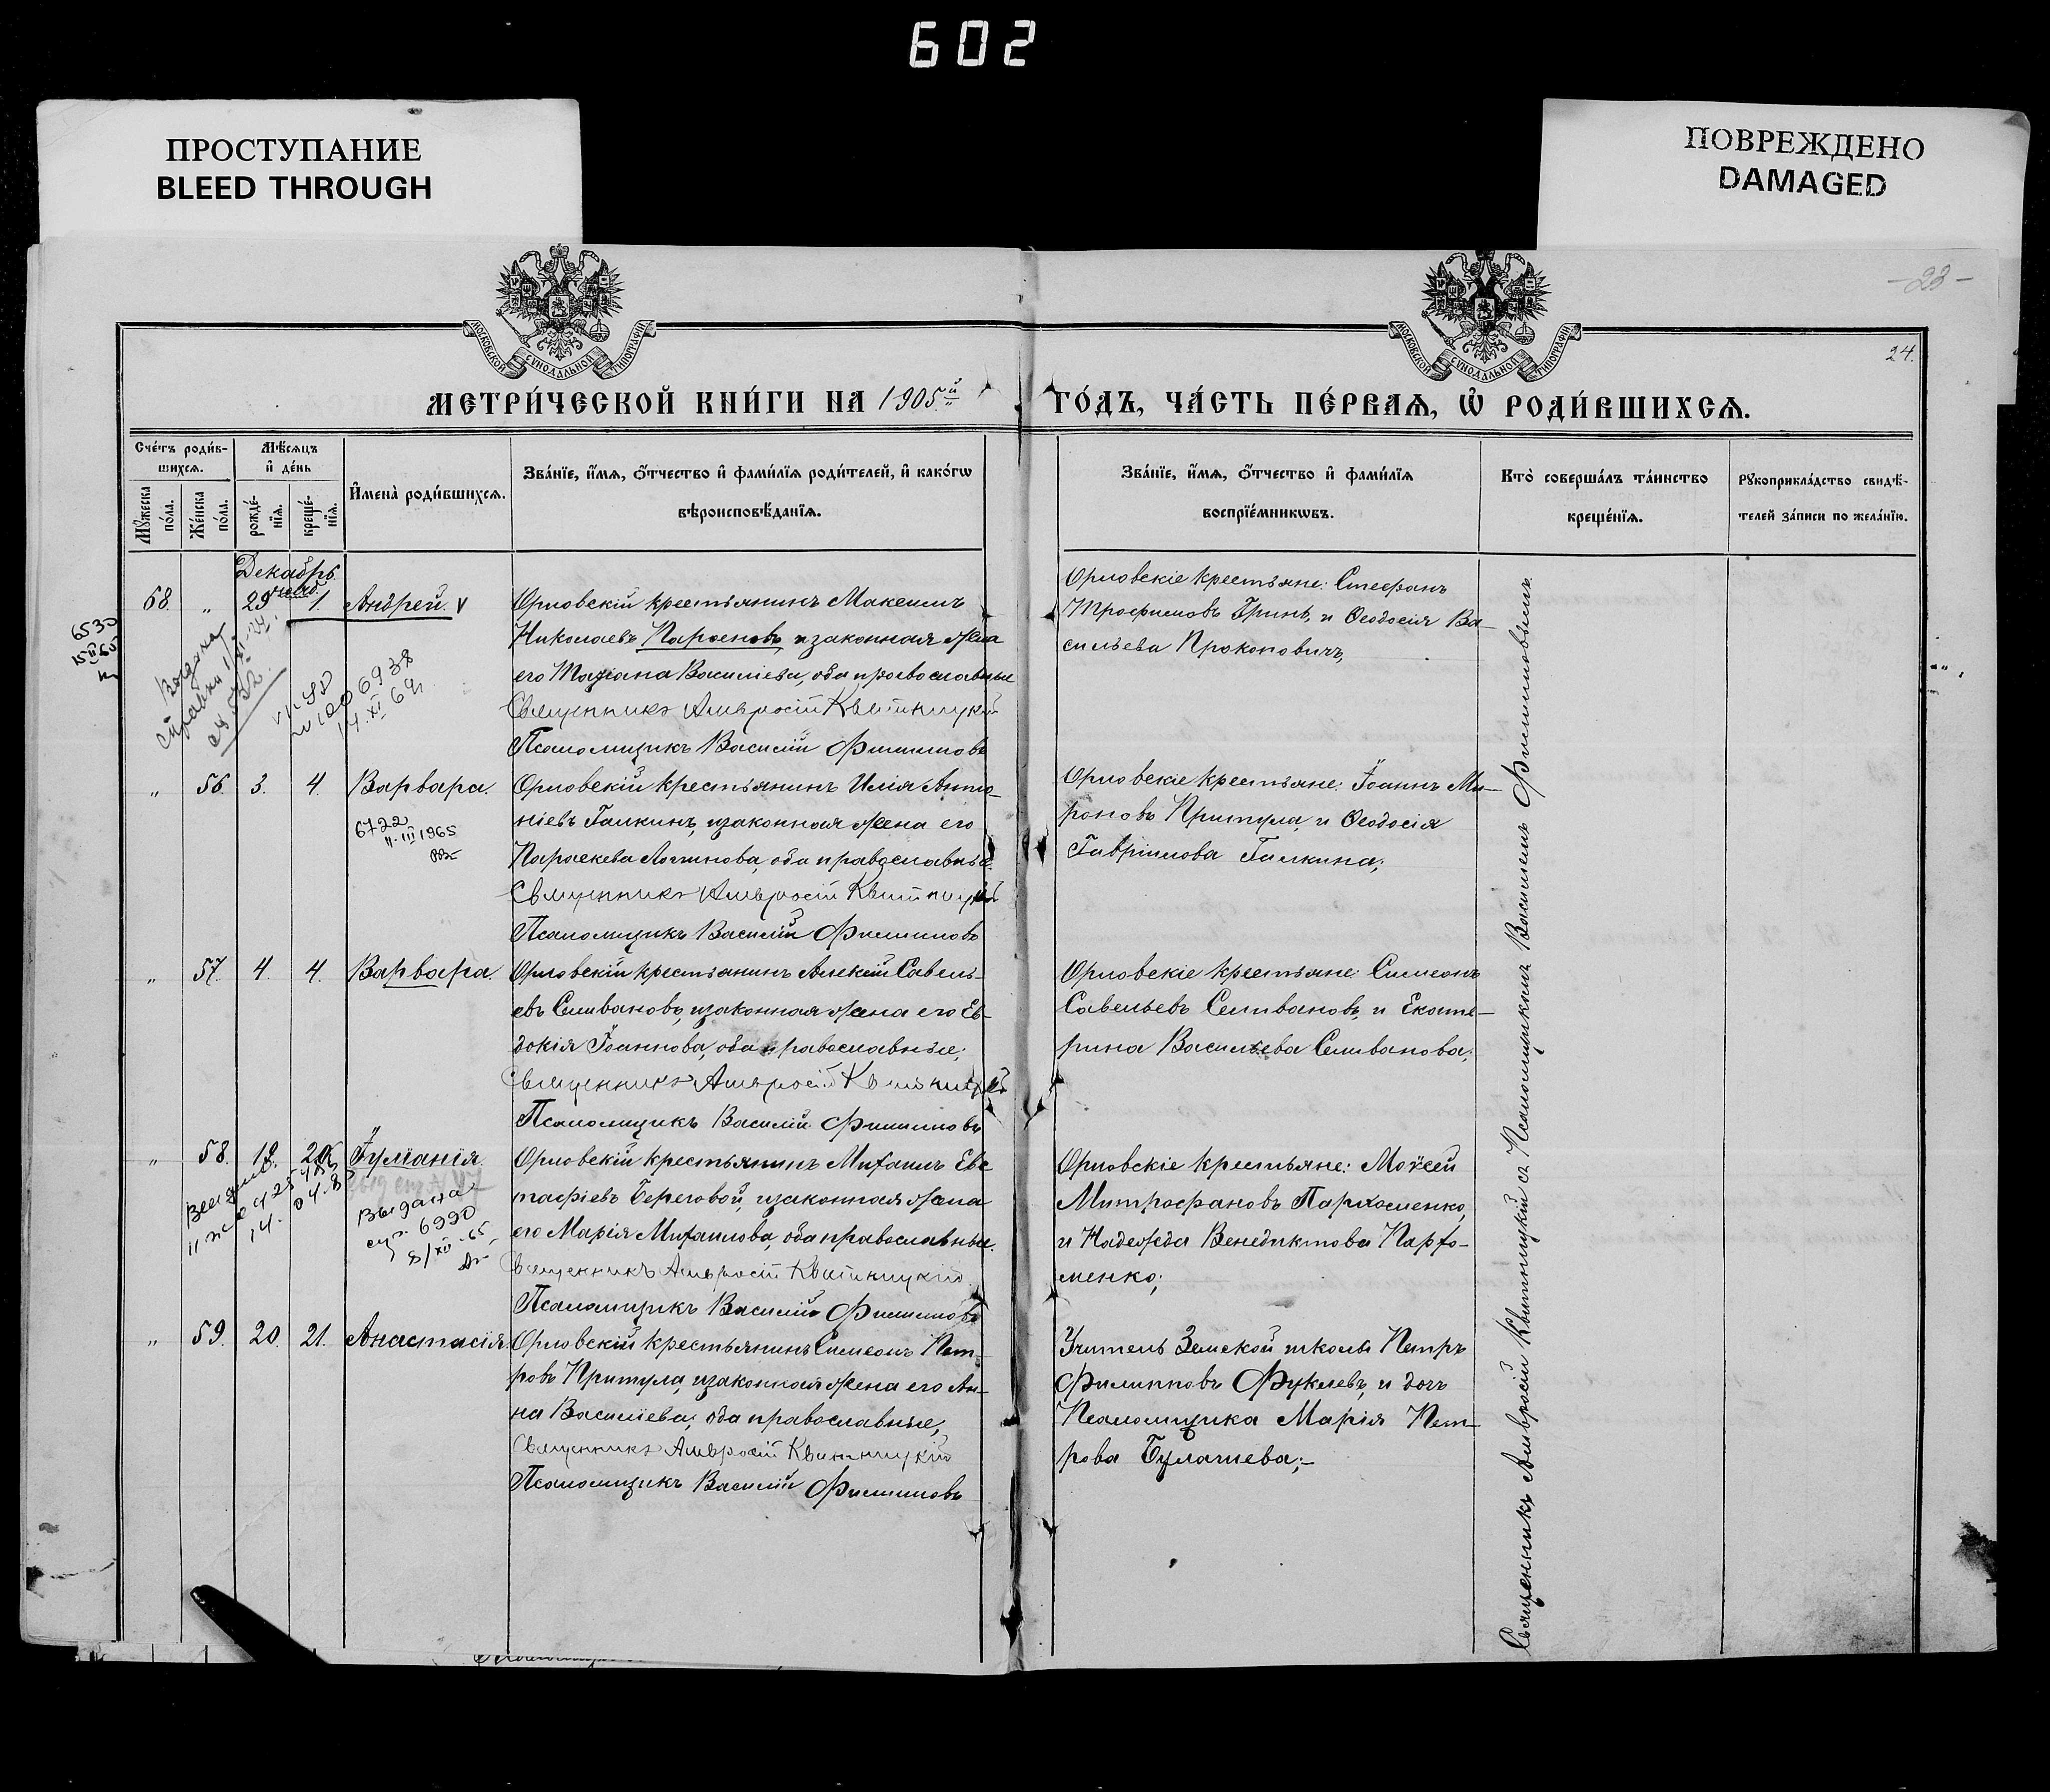 602
ПРОСТУПАНИЕ
BLEED THROUGH
ПОВРЕЖДЕНО
DAMAGED
- 23 -
24.
МОСКОВСКОЙ СѴНОДАЛЬНОЙ ТИПОГРАФІИ
МОСКОВСКОЙ СѴНОДАЛЬНОЙ ТИПОГРАФІИ
МЕТРИ́ЧЕСКОЙ КНИ́ГИ НА 1905й ГО́ДЪ, ЧА́СТЬ ПЕ́РВАѦ, Ѡ҆ РОДИ́ВШИХСѦ.
Сче́тъ роди́в-
шихсѧ.
Мꙋ́жеска
по́ла.
Же́нска
по́ла.
Мѣ́сѧцъ
и҆ де́нь
рожде́-
нїѧ.
креще́-
нїѧ.
И҆мена̀ роди́вшихсѧ.
Зва́нїе, и҆́мѧ, ѻ҆́тчество и҆ фами́лїѧ роди́телей, и҆ како́гѡ
вѣроисповѣ́данїѧ.
Зва́нїе, и҆́мѧ, ѻ҆́тчество и҆ фами́лїѧ
воспрїе́мникѡвъ.
Кто̀ соверша́лъ та́инство
креще́нїѧ.
Рꙋкоприкла́дство свидѣ́-
телей за́писи по жела́нїю.
Декабрь
68. " 29 нояб. 1. Андрей. v
Орловскій крестьянинъ Максимъ
Николаевъ Парѳеновъ, и законная жена
его Татіана Василіева, оба православные
Священникъ Амвросій Квитницкій
Псаломщикъ Василій Филиповъ
Орловскіе крестьяне: Стефанъ
Трофимовъ Гринь, и Ѳеодосія Ва-
сильева Прокоповичъ,
6530
15 II 65
Выдана
справка
6938
14. XI 64
" 56. 3. 4. Варвара.
6722
11. III 1965
Орловскій крестьянинъ Илія Анто-
ніевъ Галкинъ, и законная жена его
Параскева Логинова, оба православные
Священникъ Амвросій Квитницкій
Псаломщикъ Василій Филиповъ
Орловскіе крестьяне: Іоаннъ Ми-
роновъ Притула, и Ѳеодосія
Гавріилова Галкина;
" 57. 4. 4. Варвара.
Орловскій крестьянинъ Алексій Савель-
евъ Селивановъ, и законная жена его Ев-
докія Іоаннова, оба православные;
Священникъ Амвросій Квитницкій
Псаломщикъ Василій Филиповъ
Орловскіе крестьяне: Симеонъ
Савельевъ Селивановъ, и Екате-
рина Васильева Селиванова;
" 58. 19. 20. Іуліанія.
Выдана
6990
8/XII-65
Орловскій крестьянинъ Михаилъ Евс
тафіевъ Береговой, и законная жена
его Марія Михаилова, оба православные.
Священникъ Амвросій Квитницкій
Псаломщикъ Василій Филиповъ
Орловскіе крестьяне: Моѵсей
Митрофановъ Пархоменко,
и Надежда Венедиктова Пархо-
менко;
" 59. 20. 21. Анастасія.
Орловскій крестьянинъ Симеонъ Пет-
ровъ Притула, и законная жена его Ан-
на Василіева, оба православные,
Священникъ Амвросій Квитницкій
Псаломщикъ Василій Филиповъ
Учитель Земской школы Петръ
Филипповъ Фуклевъ, и дочь
Псаломщика Марія Пет-
рова Булачева;-
Священникъ Амвросій Квитницкій съ Псаломщикомъ Василіемъ Филиповымъ.